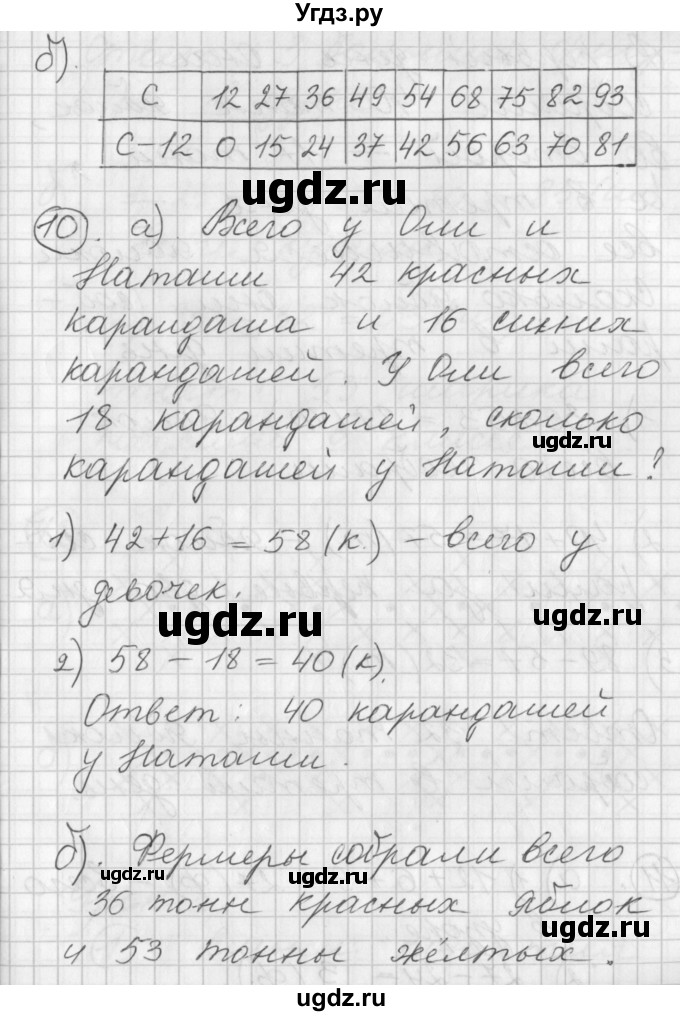 Угдз.ру
б).
С 12 27 36 49 54 68 75 82 93
С-12 0 15 24 37 42 56 63 70 81
ugdz.ru
10. а). Всего у Оли и
Наташи 42 красных
карандаша и 16 синих
карандашей. У Оли всего
18 карандашей, сколько
ugdz.ru
карандашей у Наташи?
1) 42+16=58(к.) - всего у
девочек.
ugdz.ru
ugdz.ru
2) 58-18=40(к).
Ответ: 40 карандашей
у Наташи.
б). Фермеры собрали всего
ugdz.ru
ugdz.ru
36 тонн красных яблок
и 53 тонны жёлтых.
ugdz.ru
ugdz.ru